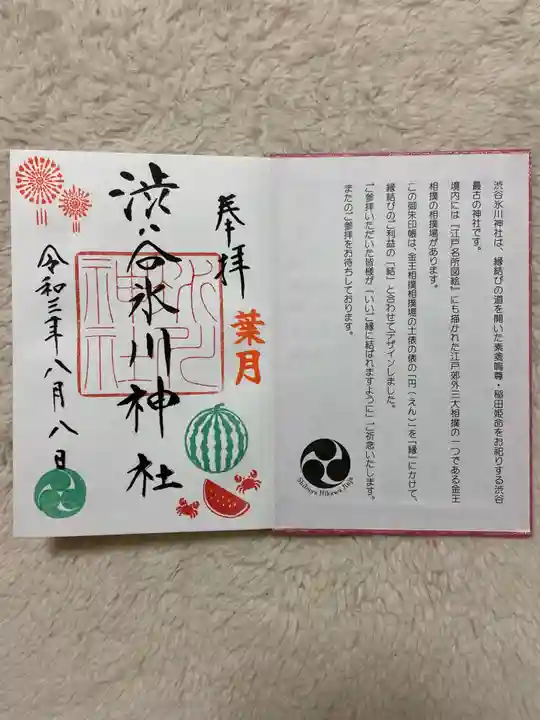 渋谷氷川神社は、縁結びの道を開いた素盞鳴尊・稲田姫命をお祀りする渋谷
最古の神社です。
境内には『江戸名所図絵』にも描かれた江戸郊外三大相撲の一つである金王
相撲の相撲場があります。
この御朱印帳は、金王相撲相撲場の土俵の俵の「円(えん)」を「縁」にかけて、
縁結びのご利益の「結」と合わせてデザインしました。
ご参拝いただいた皆様が「いいご縁に結ばれますように」ご祈念いたします。
またのご参拝をお待ちしております。
Shibuya Hikawa Jinja
奉拝
葉月
渋谷氷川神社
氷川
神社
令和三年八月八日